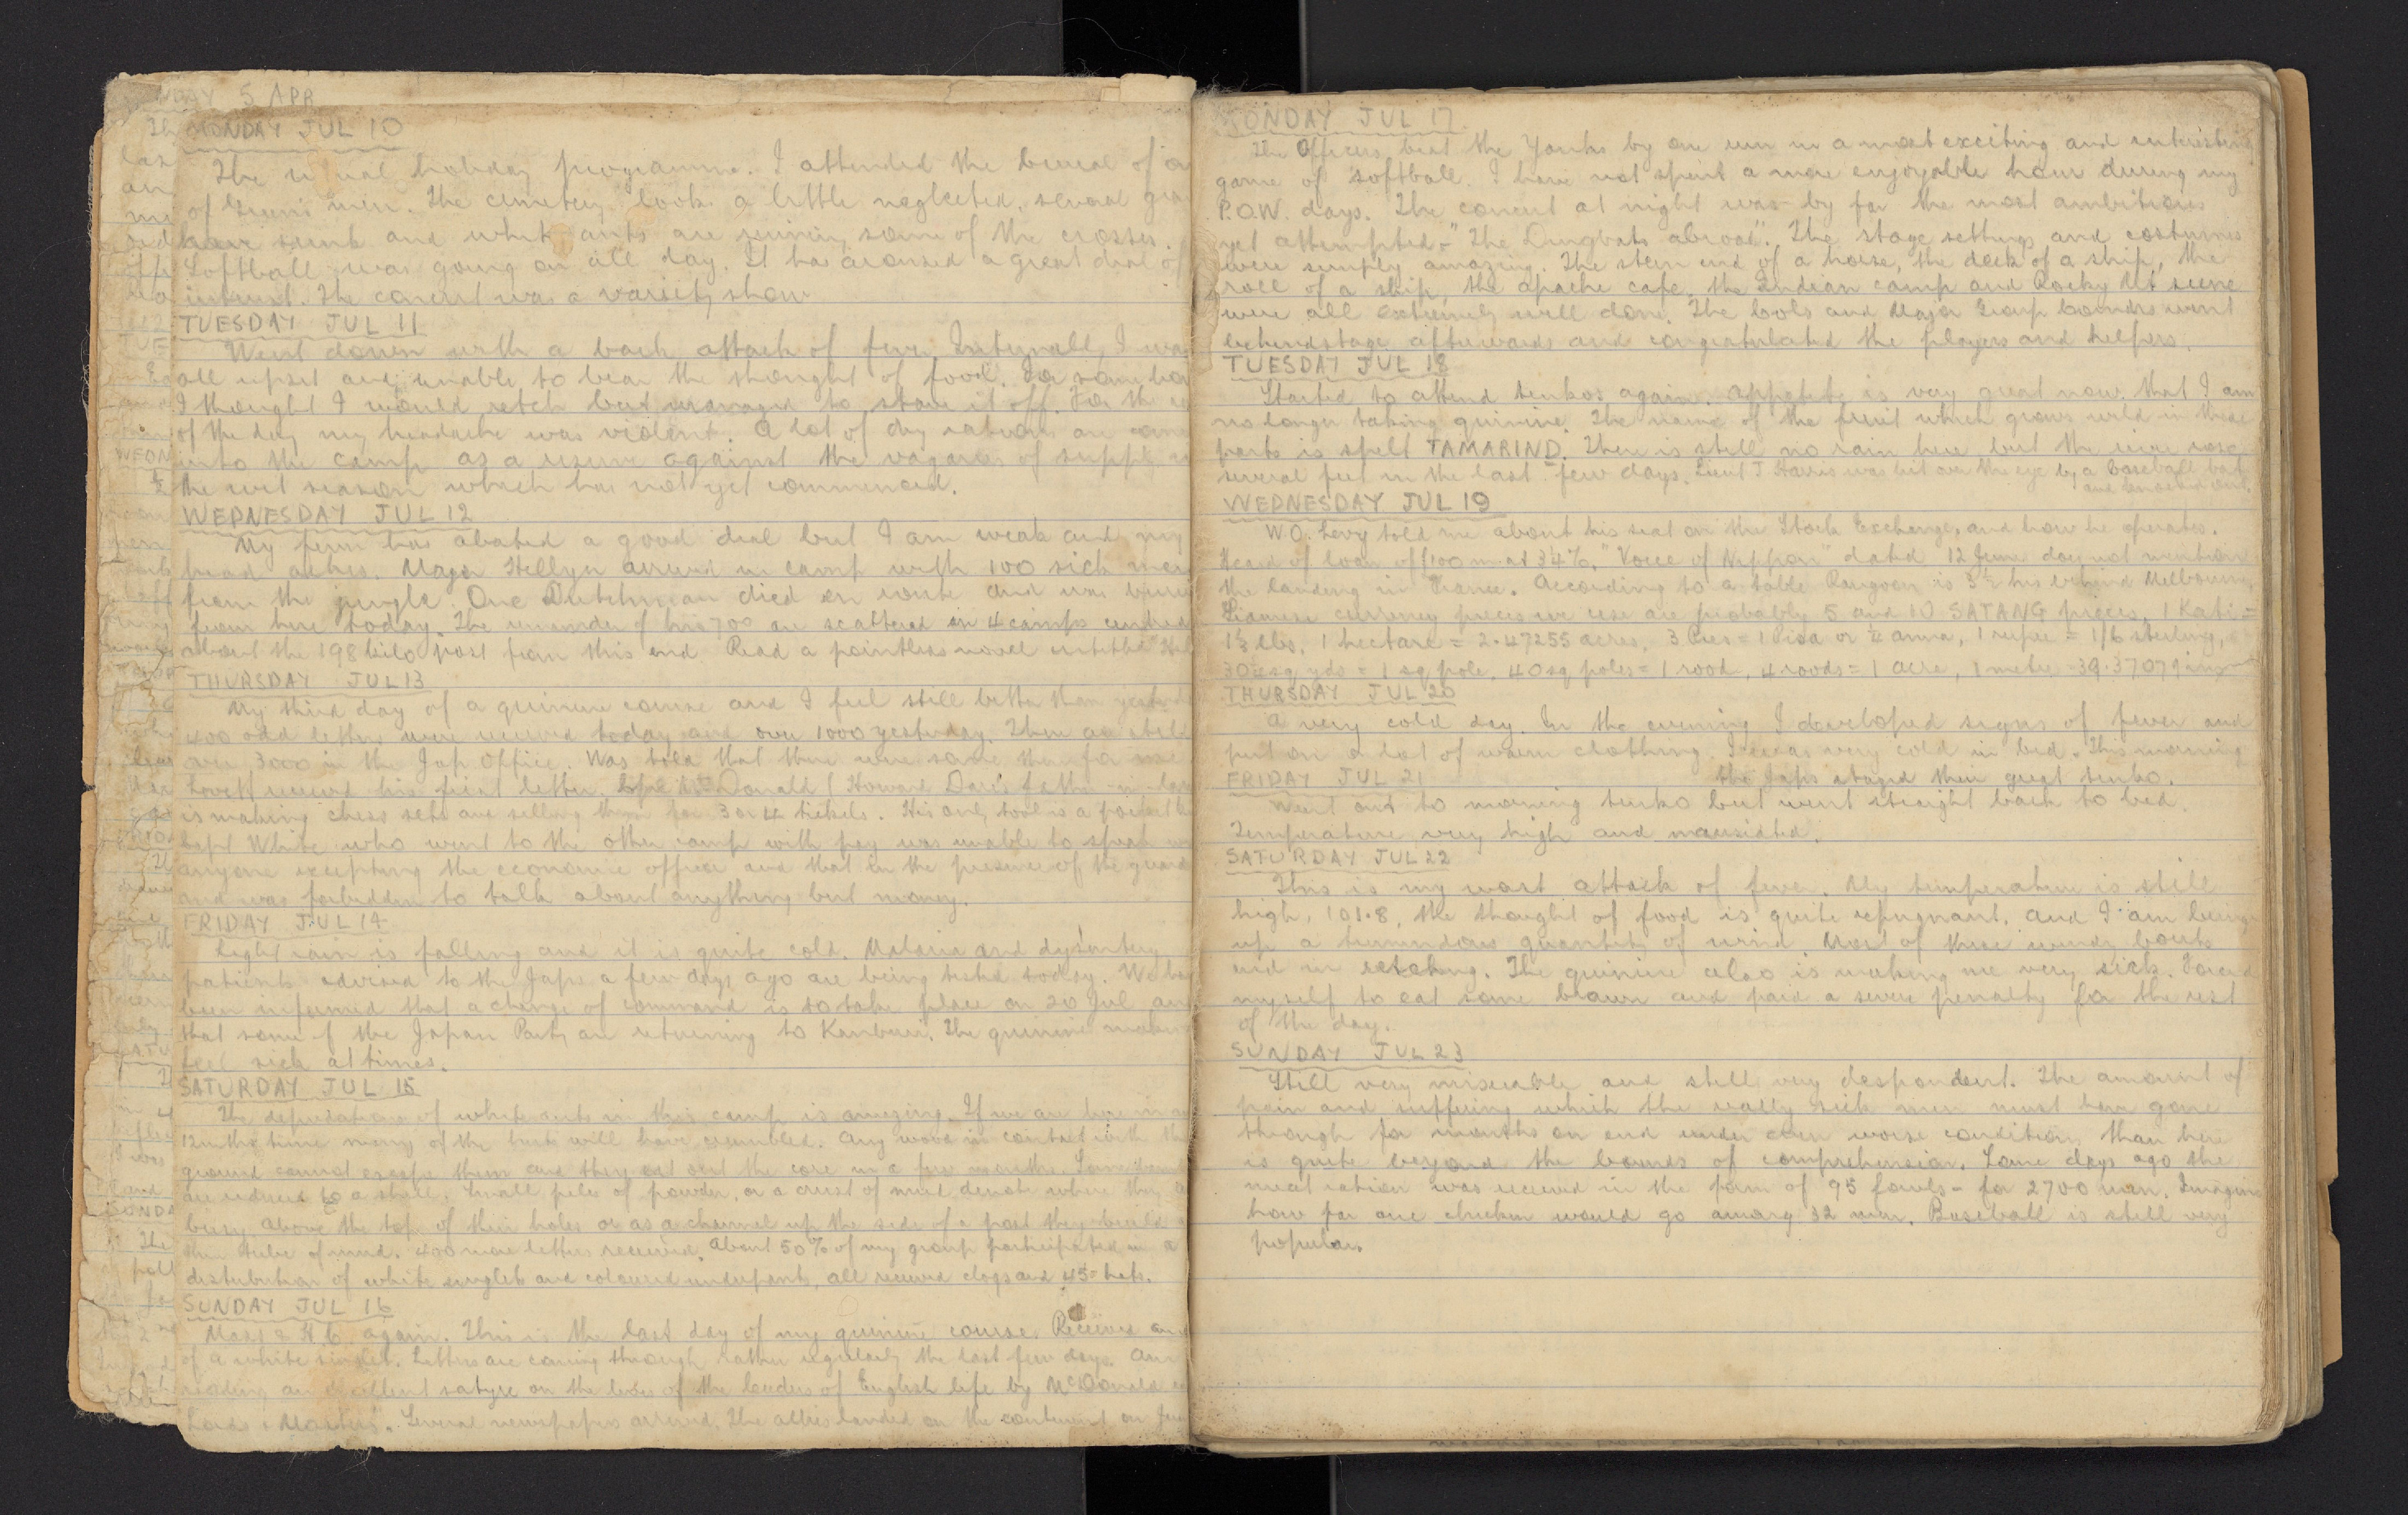 5 APR
MONDAY JUL 10
The usual holiday programme. I attended the burial of
of Green's men. The cemetery looks a little neglected, several
have sunk and white ants are ruining some of the crosses.
Softball was going on all day. It has aroused a great deal of
interest. The concert was a variety show
TUESDAY JUL 11
Went down with a bad attack of fever. Internally I was
all upset and unable to bear the thought of food. For some
I thought I would retch but managed to stave it off. For the
of the day my headache was violent. A lot of dry rations are
into the camp as a reserve against the vagaries of supply
the wet season which has not yet commenced.
WEDNESDAY JUL 12
My fever has abated a good deal but I am weak and my
head aches. Major Hellyn arrived in camp with 100 sick men
from the jungle. One Dutchman died en route and was buried
from here today. The remainder of his 700 are scattered in 4 camps centred
about the 198 kilo post from this end. Read a pointless novel entitled
THURSDAY JUL 13
My third day of a quinine course and I feel still better than
400 odd letters were received today and over 1000 yesterday. There are still
over 3000 in the Jap Office. Was told that there were some there for me.
Lovett received his first letter. McDonald (Howard Dare's father-in-law
is making chess sets and selling them for 3 or 4 tickels. His only tool is a pocket
Capt White who went to the other camp with pay was unable to speak
anyone excepting the economic officer and that in the presence of the guard
and was forbidden to talk about anything but money.
FRIDAY JUL 14
Light rain is falling and it is quite cold. Malaria and dysentery
patients advised to the Japs a few days ago are being tested today. We
been informed that a change of command is to take place on 20 Jul and
that some of the Japan Party are returning to Kanburi. The quinine
feel sick at times.
SATURDAY JUL 15
The depredations of white ants in this camp is amazing. If we are here in
12 mths time many of the huts will have crumbled. Any wood in contact with the
ground cannot escape them and they eat out the core in a few months. Some
are reduced to a shell. Small piles of powder, or a crust of mud denote where they
busy. Above the top of their holes or as a channel up the side of a post they build
thin tube of mud. 400 more letters received. About 50% of my group participated in a
distribution of white singlets and coloured underpants, all received clogs and 45 hats.
SUNDAY JUL 16
again. This is the last day of my quinine course. Received
of a white singlet. Letters are coming through rather regularly the last few days. Am
reading an excellent satyre on the lives of the leaders of English life by McDonald
Lords & Masters". Several newspapers arrived. The allies landed on the continent on
SONDAY JUL 17
The Officers beat the Yanks by one run in a most exciting and interesting
game of softball. I have not spent a more enjoyable hour during my
P.O.W. days. The concert at night was by far the most ambitious
yet attempted - "The Dingbats abroad". The stage settings and costumes
were simply amazing. The stern end of a horse, the deck of a ship, the
roll of a ship, the apache cafe, the Indian camp and Rocky Mt scene
were all extremely well done. The Cols and Major Group Comdrs went
behindstage afterwards and congratulated the players and helpers.
TUESDAY JUL 18
Started to attend tenkos again. Appetite is very great now that I am
no longer taking quinine. The name of the fruit which grows wild in these
parts is spelt TAMARIND. There is still no rain here but the river rose
several feet in the last few days. Lieut J Harris was hit over the eye by a baseball bat
and knocked out.
WEDNESDAY JUL 19
W.O. Levy told me about his seat on the Stock Exchange, and how he operates.
Heard of loan of £100 m. at 3¼%. "Voice of Nippon" dated 12 June does not mention
the landing in France. According to a table Rangoon is 3½ hrs behind Melbourne.
Siamese currency pieces we use are probably 5 and 10 SATANG pieces, 1 Kati =
1⅓ lbs, 1 hectare = 2.47255 acres, 3 Pies = 1 Pisa or ¼ anna, 1 rupee = 1/6 sterling,
30¼ sq yds = 1 sq pole, 40 sq poles = 1 rood, 4 roods = 1 acre, 1 metre = 39.37079 ins
THURSDAY JUL 20
A very cold day. In the evening I developed signs of fever and
put on a lot of warm clothing. I was very cold in bed. This morning
the Japs staged their great tenko.
FRIDAY JUL 21
Went out to morning tenko but went straight back to bed.
Temperature very high and nauseated.
SATURDAY JUL 22
This is my worst attack of fever. My temperature is still
high, 101.8, the thought of food is quite repugnant, and I am bringing
up a tremendous quantity of wind. Most of these windy bouts
end in retching. The quinine also is making me very sick. Forced
myself to eat some brawn and paid a severe penalty for the rest
of the day.
SUNDAY JUL 23
Still very miserable and still very despondent. The amount of
pain and suffering which the really sick men must have gone
through for months on end under even worse conditions than here
is quite beyond the bounds of comprehension. Some days ago the
meat ration was received in the form of 95 fowls - for 2700 men. Imagine
how far one chicken would go among 32 men. Baseball is still very
popular.